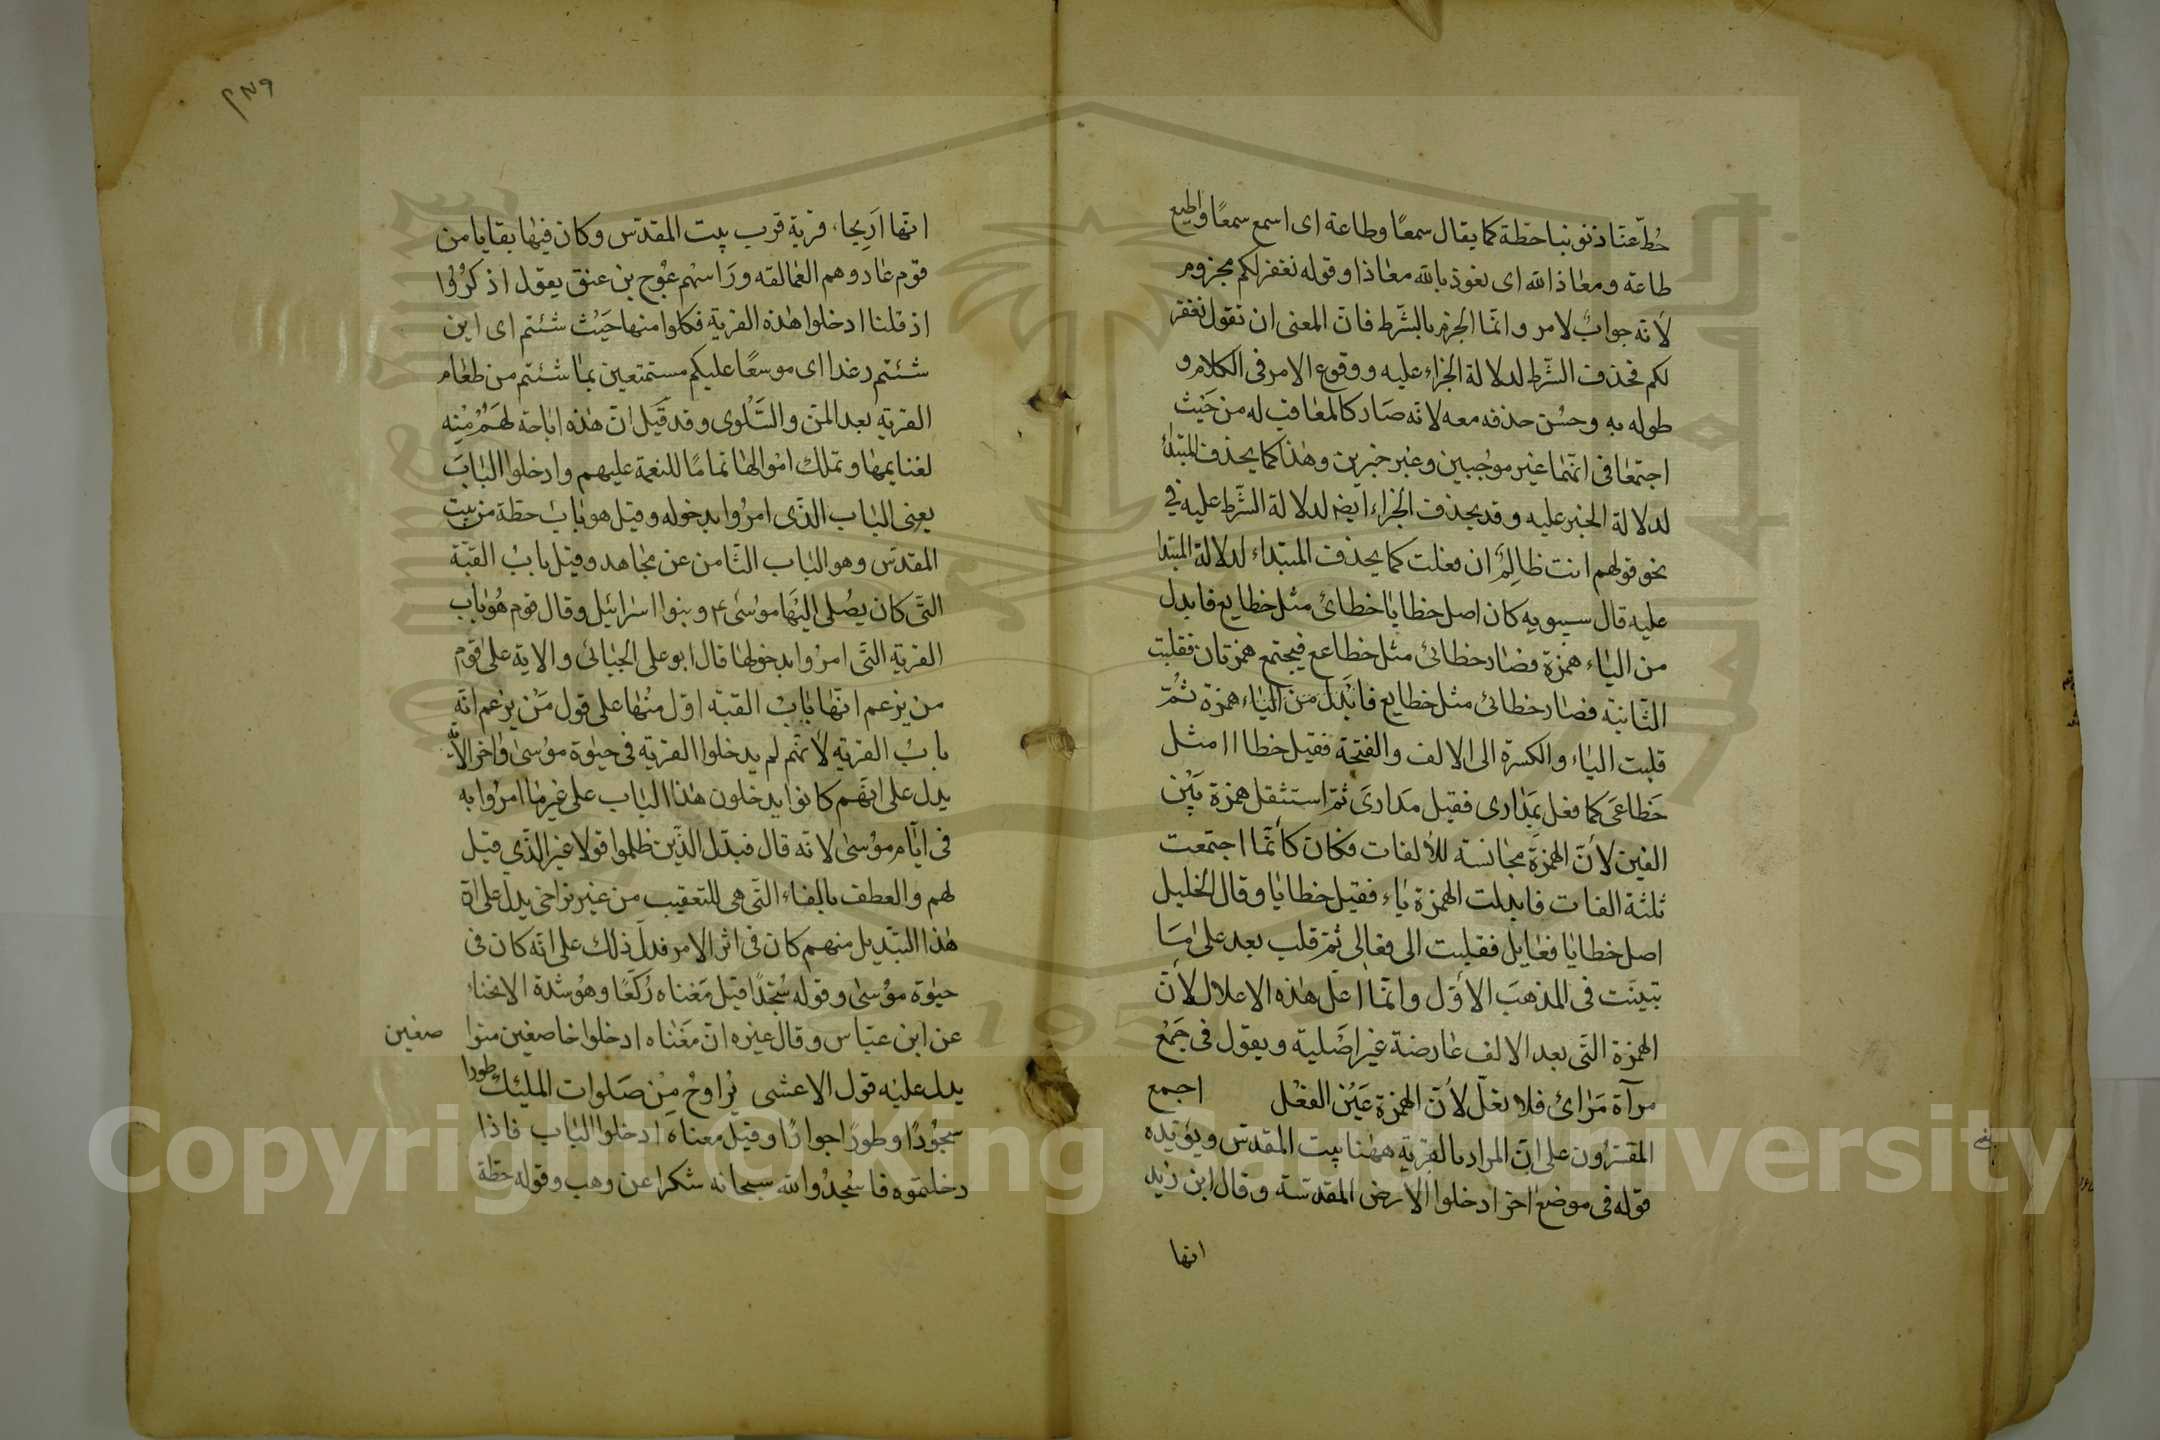 حُطّ عنّا ذنوبنا حطّة كما يقال سمعًا وطاعة اى اسمع سمعًا واطيع
طاعة ومعاذ الله اى نعوذ بالله معاذا وقوله نغفر لكم مجزوم
لانه جواب لامر وانّما الجزم بالشّرط فانّ المعنى ان تقولوا نغفر
لكم فحذف الشّرط لدلالة الجزاء عليه ووقوع الامر فى الكلام و
طوله به وحسُن حذفه معه لانّه صار كالمعاقب له من حَيْث
اجتمعا فى انّهما غير موجبين وغير خبرين وهذا كما يحذف المبتدأ
لدلالة الخبر عليه وقد يحذف الجزاء ايضا لدلالة الشّرط عليه فى
نحو قولهم انت ظالِمٌ ان فعلت كما يحذف المبتداء لدلالة المبتدا
عليه قال سيبويه كان اصل خطايا خطائ مثل خطايع فابدل
من الياء همزة فصار خطائئ مثل خطاعع فيجتمع همزتان فقلبت
الثّانية فصار خطائى مثل خطايع فابدل من الياء همزة ثُمّ
قلبت الياء والكسرة الى الالف والفتحة فقيل خطااا مثل
خَطاعَى كما فعل بمَدارى فقيل مَدارَى ثمّ استثقل همزة بَيْن
الفين لأنّ الهمزة مجانسة للالفات فكان كأنّما اجتمعت
ثلثة الفات فابدلت الهمزة ياء فقيل خطايا وقال الخليل
اصل خطايا فعايل فقلبت الى فعالى ثمّ قلب بعد على ما
تبيّنَت فى المذهبَ الأوّل وانّما اعلّ هذه الاعلال لانّ
الهمزة التى بعد الالف عارضة غير اصْلية ويقول فى جَمْع
مرآة مَرائ فلا تعلّ لأنّ الهمزة عَيْن الفعْل اجمع
المفسّرون على انّ المراد بالقرية ههنا بيت المقدّس ويؤيّده
قوله فى موضع اخر ادخلوا الارض المقدّسة وقال ابن زيد
انها
انّها اَرِيحاء قرية قرب بيت المقدّس وكان فيها بقايا من
قوم عاد وهم العمالقه ورَاسهم عُوج بن عنق يقول اذكرُوا
اذ قلنا ادخلوا هذه القرية فكلوا منها حَيْث شئتم اى اين
شئتم رغدا اى موسعًا عليكم مستمتعين بما شئتم من طعام
القرية بعد المنّ والسَّلوى وقد قيل انّ هذه اباحة لهم منه
لغنايمها وتملك اموالها تمامًا للنعمة عليهم وادخلوا البابَ
يعنى الباب الّذى امرُوا بدخوله وقيل هو باب حطّة من بيت
المقدّس وهو الباب الثّامن عن مجاهد وقيل باب القبّة
التّى كان يصُلى اليها موسٰى ع وبنوا اسرائيل وقال قوم هُو باب
القرية التّى امرُوا بدخولها قال ابو على الجبائى والاية على قوم
من يزعم انّها باب القبّة اوّل منها على قول مَنْ يزعم انّه
باب القرية لأنّهم لم يدخلوا القرية فى حيٰوة موُسىٰ واخر الاٰية
يدل على انّهم كانوا يدخلون هذا الباب على غير ما امرُوا به
فى ايّام موُسىٰ لانّه قال فبدّل الّذين ظلموا قولا غير الّذي قيل
لهم والعطف بالفاء التّى هى للتعقيب من غير تراخى يدلّ على انّ
هذا التبّديل منهم كان فى اثر الامر فدلّ ذلك على انّه كان فى
حيٰوة موُسىٰ وقوله سُجّدًا قيل مَعْناه رُكّعًا وهُو شدة الانحناء
عن ابن عبّاس وقال غيره انّ مَعْناه ادخلوا خاضعين متوا
صغين
يدل عليْه قول الاعشى يُراوحُ مِنْ صَلوات المليك طورا
سجُودًا وطورًا جوارًا وقيل معناه ادخلوا الباب فاذا
دخلتموه فاسْجدُوا لله سبحانه شكرا عن وهب وقوله حطّة
Copyright © King Saud University
1957